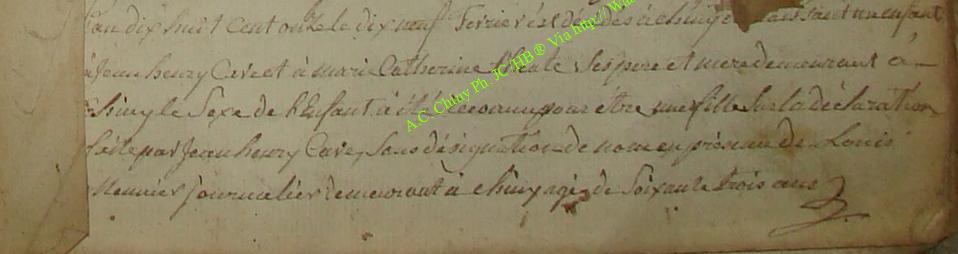 L'an dix huit cent onze le dix neuf fevrier est décédés à chiny en naissant un enfant
à Jean henry Cave et à marie Catherine thcate Ses pere et mere demeurant à
Chiny le Sexe de l'Enfant à été Reconnu pour etre une fille Sur la déclaration
faite par Jean henry Cave, Sans désignation de nom en présence de Louis
Meunier journalier demeurant à chiny agé de Soixante trois ans
A.C. Chiny Ph. JC HB® Via http://Wa